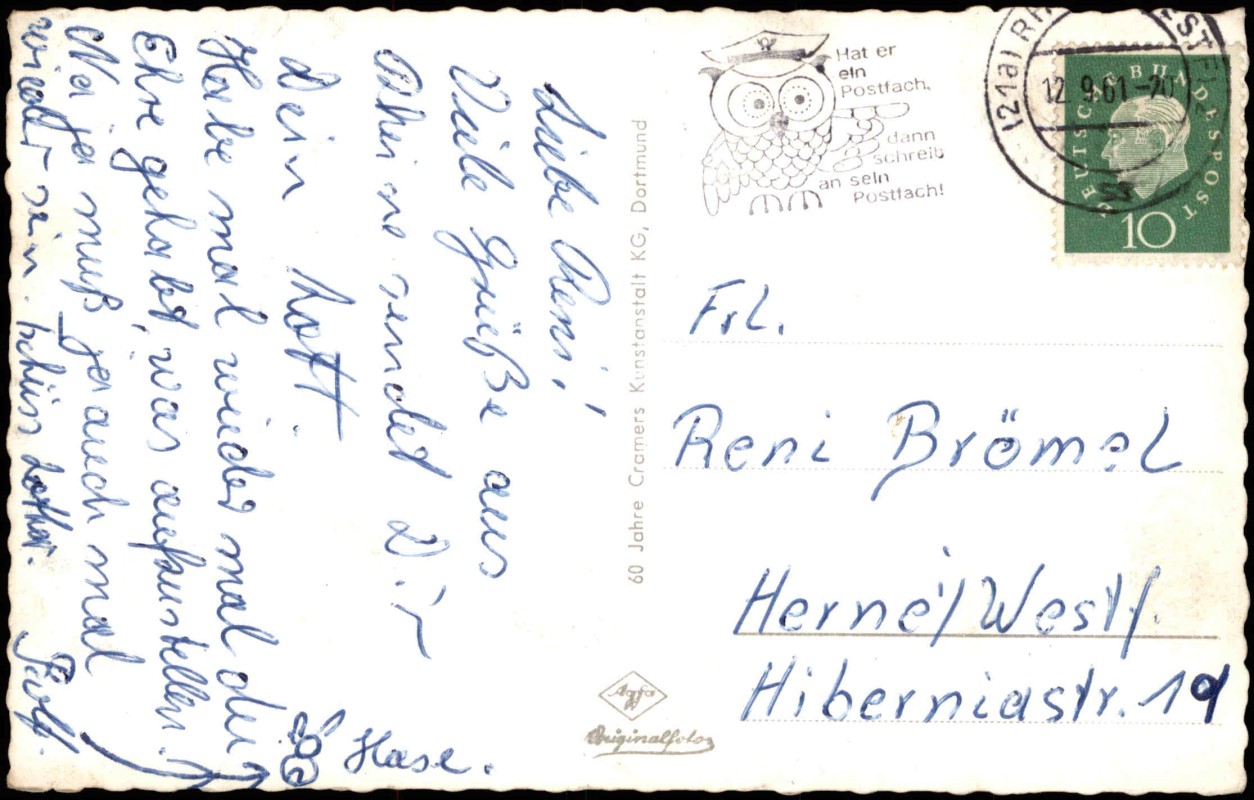 Liebe Reni!
Viele Grüße aus
Rheine sendet Dir
Dein Lott.
Habe mal wieder mal die
Ehre gehabt, was aufzustellen.
Na ja muß ja auch mal
wieder sein. tschüss Lothar.
Hase.
60 Jahre Cramers Kunstanstalt KG, Dortmund
Agfa
Originalfoto
Hat er
ein
Postfach,
dann
schreib
an sein
Postfach!
(21a) RH
12.9.61-20
DEUTSCHE BUNDESPOST
10
Frl.
Reni Brömel
Herne/Westf.
Hiberniastr. 19